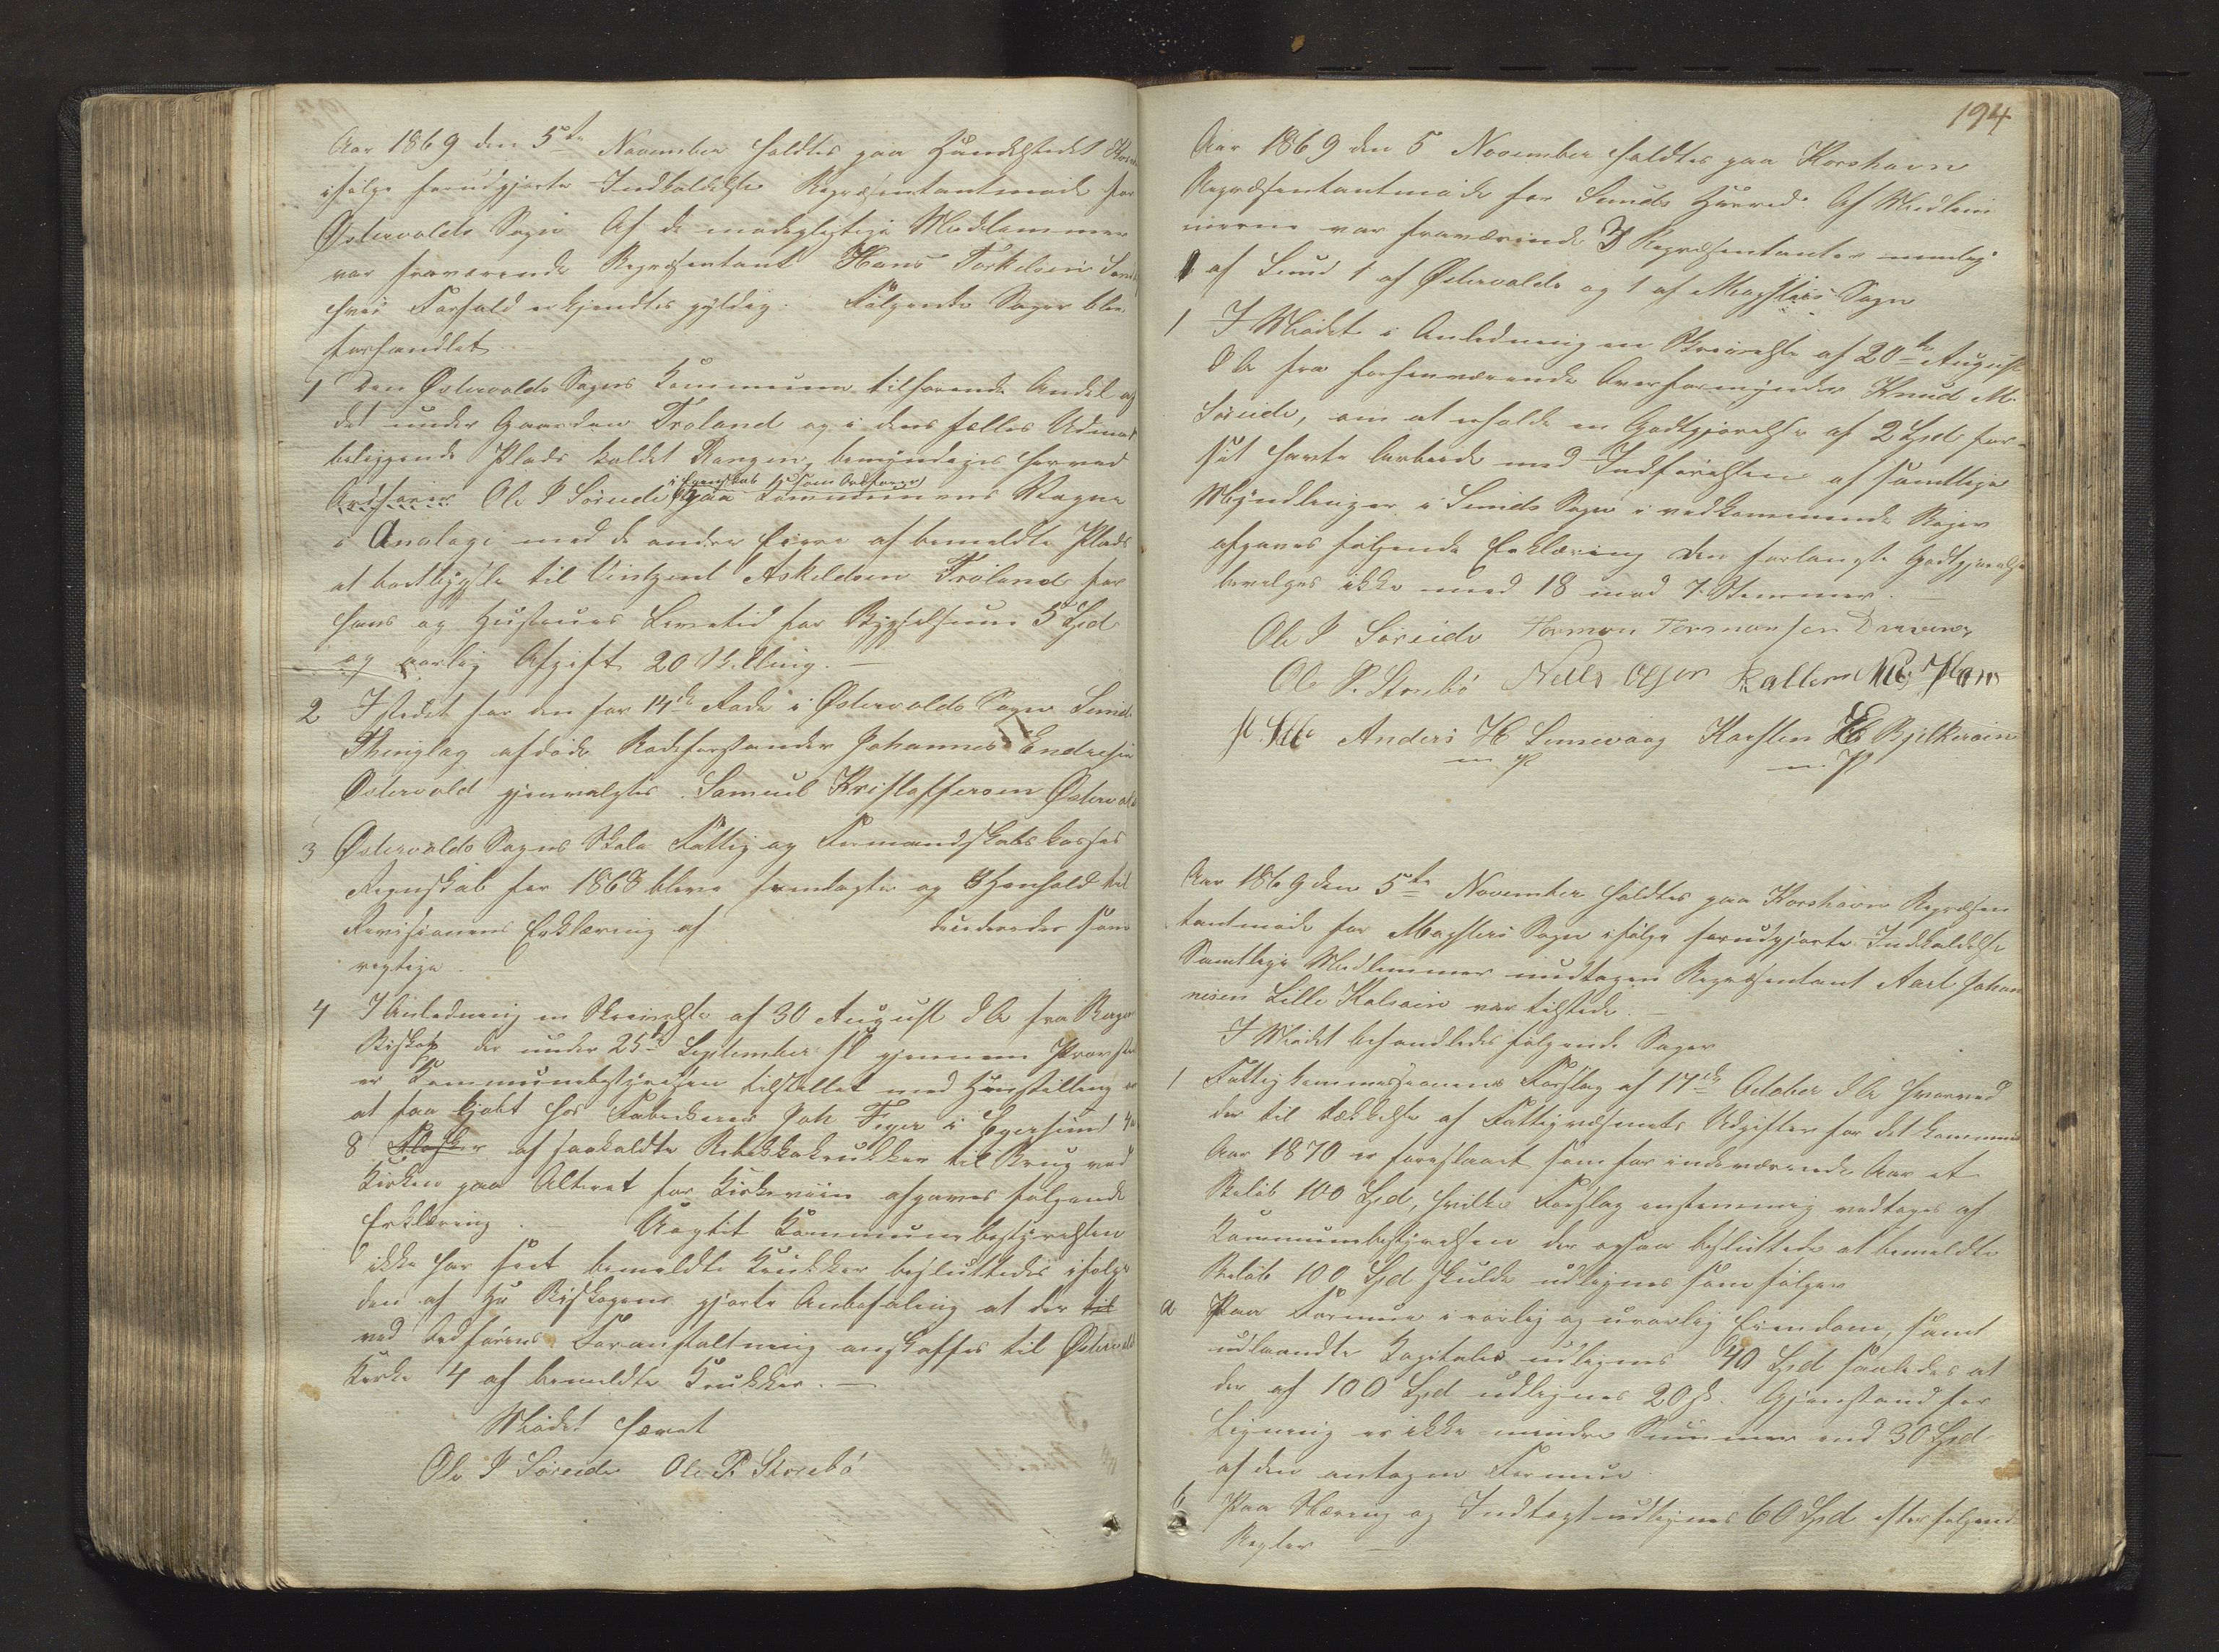 Aar 1869 den 5te November holdtes paa Handelstedet
ifølge forudgjorte Indkaldelse Repræsentantmøde for
Østervolds Sogn Af de mødepligtige Medlemmer
var fraværende Repræsentant Hans Torkelsen
hvis Forfald erkjendtes gyldig. Følgende Sager blev
forhandlet
1 Den Østervolds Sogns Kommune tilhørende Andel af
det under Gaarden Troland og i dens fælles Udmark
beliggende Plads kaldet Rangen, bemyndiges herved
i Egenskab som Ordfører
Ordfører Ole I Søreide paa Kommunens Vegne
i Analogi med de andre Eiere af bemeldte Plads
at bortbygsle til Vintzent Askeldsen Troland for
hans og Hustrues Levetid for Bygselsum 5 Spd
og aarlig Afgift 20 Skilling. —
2 I Stedet for den for 14de Rode i Østervolds Sogn Sund
Thinglag afdøde Rodeforstander Johannes Endresen
Østervold gjenvalgtes Samuel Kristoffersen Østervold
3 Østervolds Sogns Skole Fattig og Formandskabskasses
Regnskab for 1868 bleve fremlagte og i Henhold til
Revisionens Erklæring af decideredes som
rigtige.
4 I Anledning en Skrivelse af 30 August d A fra Bergens
Biskop der under 25de September gjennem Provsten
er Kommunebestyrelsen tilstillet med Henstilling om
at faa kjøbt hos Fabrikeier Joh Feyer i Egersund 4 a
8 Flasker af saakaldte Rebekkakrukker til Brug ved
Kirken paa Alteret for Kirkeviin afgaves følgende
Erklæring. — Uagtet Kommunebestyrelsen
ikke har seet bemeldte Krukker besluttedes ifølge
den af Hr Biskopens gjorte Anbefaling at der til
ved Ordførens Foranstaltning anskaffes til Østervold
Kirke 4 af bemeldte Krukker. —
Mødet hævet
Ole I Søreide Ole P. Storebö
194
Aar 1869 den 5 November holdtes paa Korshavn
Repræsentantmøde for Sunds Herred. Af Medlem
merne var fraværende 3 Repræsentanter nemlig
1 af Sund 1 af Østervolds og 1 af Møgsters Sogn
1 I Mødet i Anledning en Skrivelse af 20de August
d A fra forhenværende Overformynder Knud M.
Søreide, om at erholde en Godtgjørelse af 2 Spd for
sit havte Arbeide med Indførelsen af samtlige
Myndlinger i Sunds Sogn i vedkommende Bøger
afgaves følgende Erklæring den forlangte Godtgjørelse
bevilges ikke med 18 mod 7 Stemmer. —
Ole I Søreide Tormon Tormonsen
Ole P. Storebö Nells Olsen
Anders H Lunevaag Karsten H Bjelkerøen
m P m P
Aar 1869 den 5te November holdtes paa Korshavn Repræsen
tantmøde for Møgsters Sogn ifølge forudgjorte Indkaldelse
Samtlige Medlemmer undtagen Repræsentant Axel Johan
nesen Lille Kalsøen var tilstede. —
I Mødet behandledes følgende Sager
1 Fattigkommissionens Forslag af 17de October d A hvorved
der til Dækkelse af Fattigvæsenets Udgifter for det kommende
Aar 1870 er foreslaaet som for indeværende Aar et
Beløb 100 Spd, hvilke Forslag enstemmig vedtoges af
Kommunebestyrelsen der ogsaa besluttede at bemeldte
Beløb 100 Spd skulde udlignes som følger
a Paa Formue i rørlig og urørlig Eiendom, samt
udlaandte Kapitaler udlignes 40 Spd saaledes at
der af 100 Spd udlignes 20 sk. Gjenstand for
Ligning er ikke mindre Summer end 30 Spd
af den antagne Formue.
b Paa Næring og Indtægt udlignes 60 Spd efter følgende
Regler —